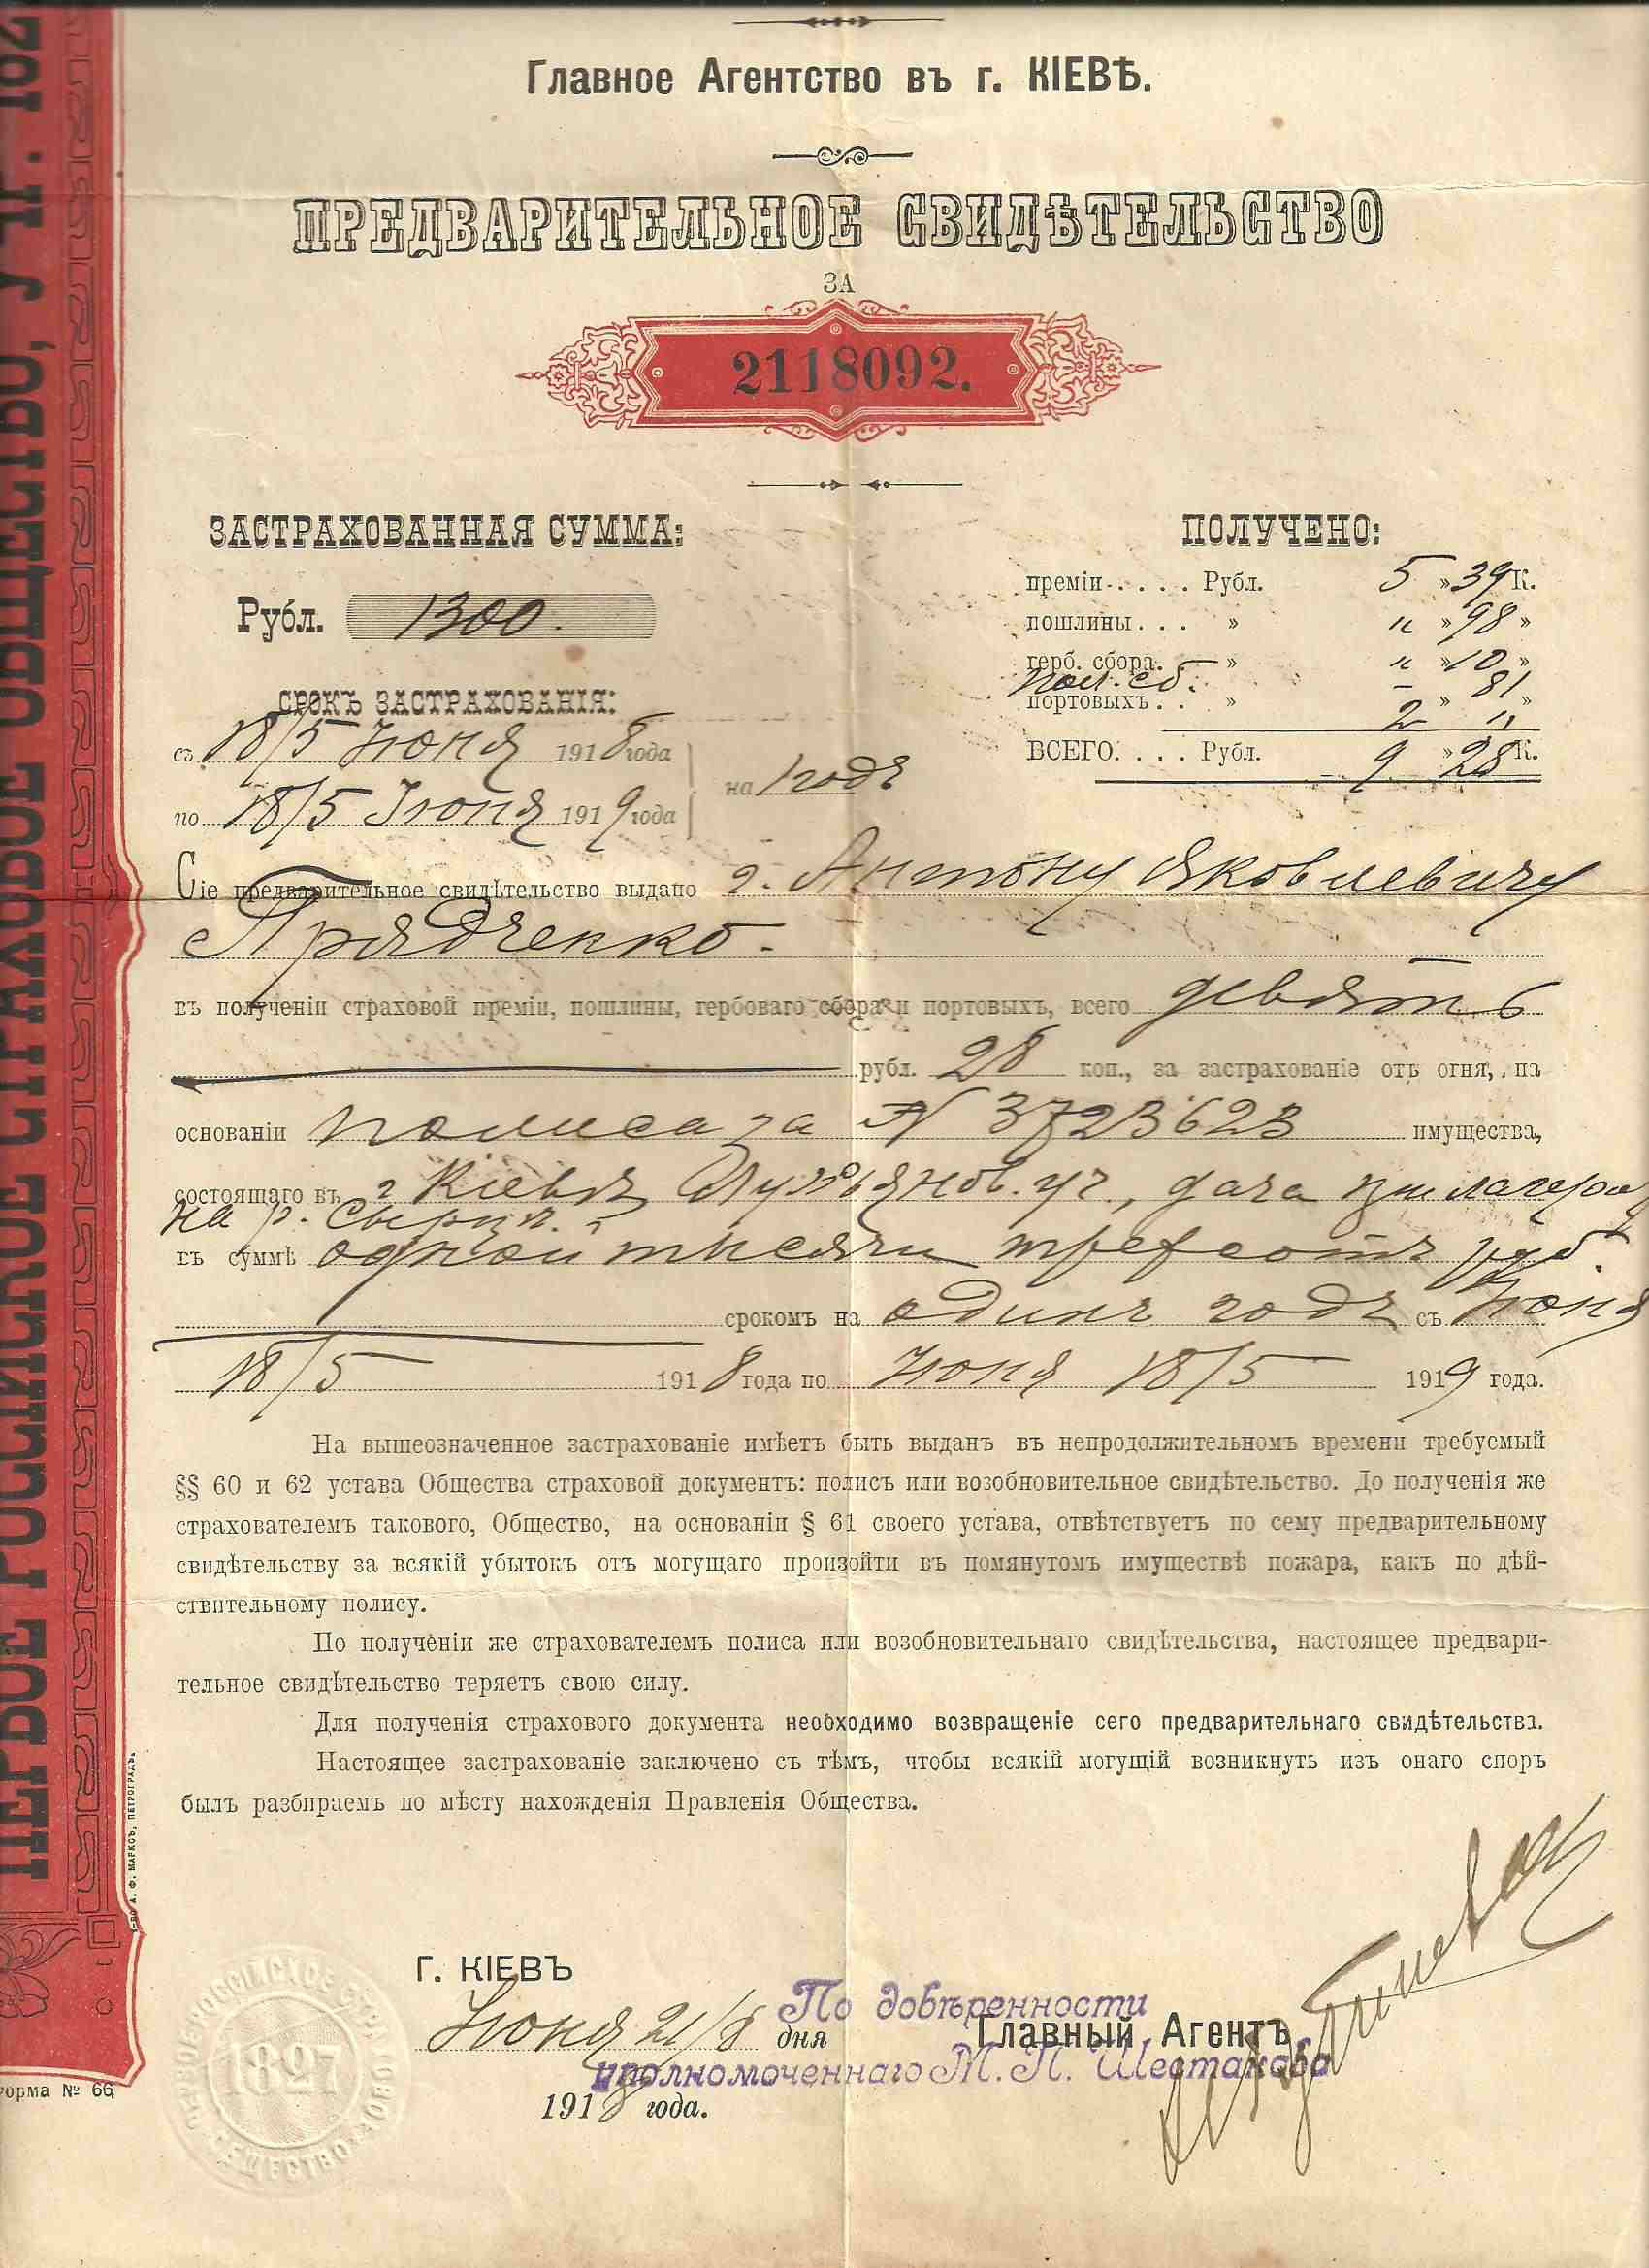 ПЕРВОЕ РОССІЙСКОЕ СТРАХОВОЕ ОБЩЕСТВО, УЧР. 182
Главное Агентство въ г. КІЕВѢ.
ПРЕДВАРИТЕЛЬНОЕ СВИДѢТЕЛЬСТВО
ЗА
2118092.
ЗАСТРАХОВАННАЯ СУММА:
Рубл. 1300.
СРОКЪ ЗАСТРАХОВАНІЯ:
съ 18/5 Іюня 1918 года
по 18/5 Іюня 1919 года
на 1 годъ
ПОЛУЧЕНО:
преміи . . . . Рубл. 5 » 39 К.
пошлины . . . » " » 98 »
герб. сбора. » " » 10 »
Пол. сб. – 81
портовыхъ . . » 2 » " »
ВСЕГО. . . . Рубл. 9 » 28 К.
Сіе предварительное свидѣтельство выдано г. Антону Яковлевичу
Прядченко.
въ полученіи страховой преміи, пошлины, гербоваго сбора и портовыхъ, всего девять
рубл. 28 коп., за застрахованіе отъ огня, на
основаніи полиса за № 3723623 имущества,
состоящаго въ г Кіевѣ Лукьянов. уч., дача лагеря
на р. Сырцѣ.
въ суммѣ одной тысячи трехсотъ руб.
срокомъ на одинъ годъ съ Іюня
18/5 1918 года по Іюня 18/5 1919 года.
На вышеозначенное застрахованіе имѣетъ быть выданъ въ непродолжительномъ времени требуемый
§§ 60 и 62 устава Общества страховой документъ: полисъ или возобновительное свидѣтельство. До полученія же
страхователемъ такового, Общество, на основаніи § 61 своего устава, отвѣтствуетъ по сему предварительному
свидѣтельству за всякій убытокъ отъ могущаго произойти въ помянутомъ имуществѣ пожара, какъ по дѣй-
ствительному полису.
По полученіи же страхователемъ полиса или возобновительнаго свидѣтельства, настоящее предвари-
тельное свидѣтельство теряетъ свою силу.
Для полученія страхового документа необходимо возвращеніе сего предварительнаго свидѣтельства.
Настоящее застрахованіе заключено съ тѣмъ, чтобы всякій могущій возникнуть изъ онаго споръ
былъ разбираемъ по мѣсту нахожденія Правленія Общества.
Т-во А. Ф. МАРКСЪ, ПЕТРОГРАДЪ.
Г. КІЕВЪ
Іюня 21/8 дня
1918 года.
По довѣренности
Главный Агентъ
уполномоченнаго М. П. Шестакова
1827
форма № 66